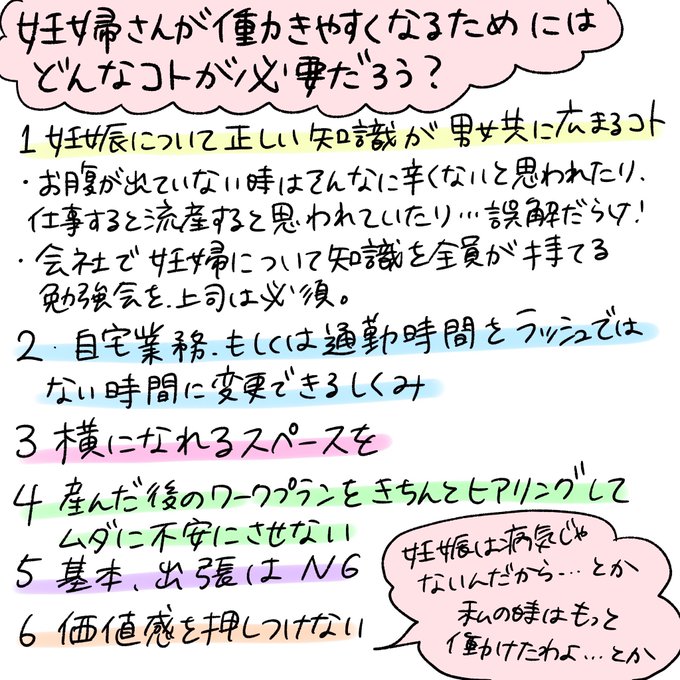 妊婦さんが働きやすくなるためには
どんなコトが必要だろう?
1 妊娠について正しい知識が男女共に広まるコト
・お腹が出ていない時はそんなに辛くないと思われたり、
仕事すると流産すると思われていたり…誤解だらけ!
・会社で妊婦について知識を全員が持てる
勉強会を、上司は必須。
2.自宅業務、もしくは通勤時間をラッシュでは
ない時間に変更できるしくみ
3 横になれるスペースを
4 産んだ後のワークプランをきちんとヒアリングして
ムダに不安にさせない
5 基本、出張はNG
6 価値感を押しつけない
妊娠は病気じゃ
ないんだから…とか
私の時はもっと
働けたわよ…とか